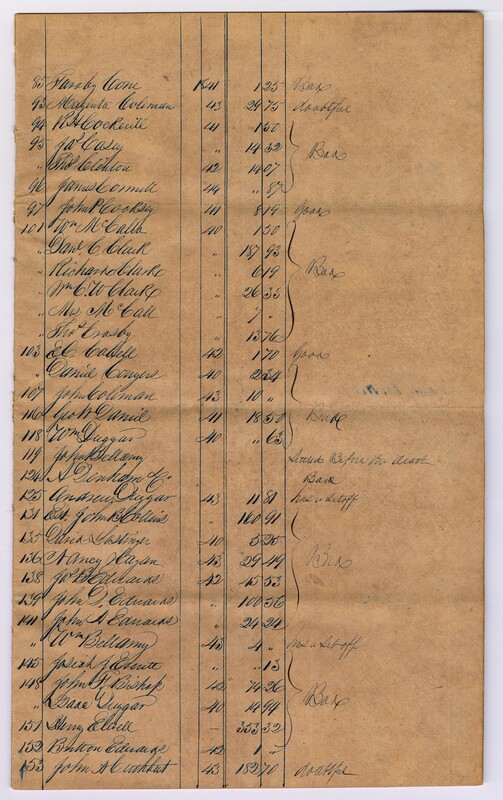 85 Farnby Cone 1841 1 25 Bad
93 Coleman 43 29 75 doubtful
94 R H Cockrill 41 1 50
95 Jas Casey " 14 32 Bad
" Thos Clifton 42 14 07
96 James 44 " 87
97 John P Cooksey 41 8 19 Good
101 Wm McCall 40 1 50
" Danl. C. Clark " 187 93
" Richard Clark " 6 19 Bad
" Wm C. W Clark " 26 33
" Mrs. McCall " 7 "
" Thos Crosby " 13 76
103 E C 42 1 70 Good
" Daniel Conyers 40 2 24
107 John Coleman 43 10 "
116 Geo W Daniel 41 18 50 Bad
118 Wm Duggar 40 " 63
119 John Bellamy Settled Before the
124 A Denham & Co. Bad
125 Andrew Duggar 43 11 81 has a Set off
131 Est. John B Collins " 160 91
135 David 40 5 25
136 Nancy Hagan 43 29 49 Bad
138 Jos B Edwards 42 15 53
139 John D, Edwards " 100 56
141 John A Edwards " 24 24
" Wm Bellamy 43 4 " has a Set off
145 Josiah J Everitt " " 13
148 John F, Bishop 42 74 26
" Isaac Duggar 40 14 94 Bad
151 Henry — 353 32
152 Britton Edwards 42 1 "
153 John A 43 182 70 doubtful